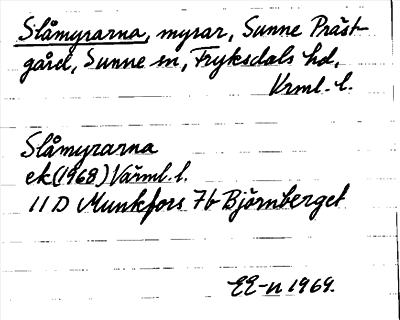 Slåmyrarna, myrar, Sunne Präst-
gård, Sunne sn, Fryksdals hd,
Vrml. l.
Slåmyrarna
ek (1968) Värml. l.
11 D Munkfors 7b Björnberget
EE-n 1969.